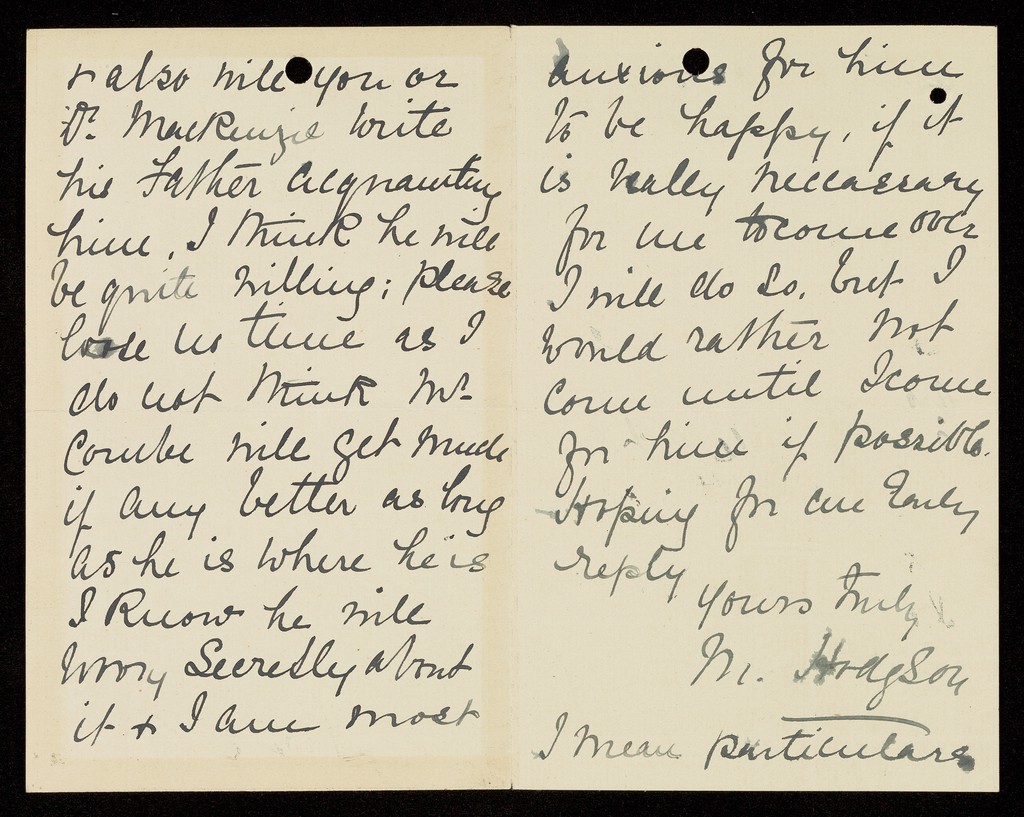 & also will you or
Dr. MacKenzie write
his Father acquainting
him, I think he will
be quite willing; please
loose no time as I
do not think Mr.
Combe will get much
if any better as long
as he is where he is
I know he will
worry Secretly about
it & I am most
anxious for him
to be happy, if it
is really neccassary
for me to come over
I will do so, but I
would rather not
come until I come
for him if possible.
Hoping for an Early
reply
Yours truly
M. Hodgson
I mean particulars